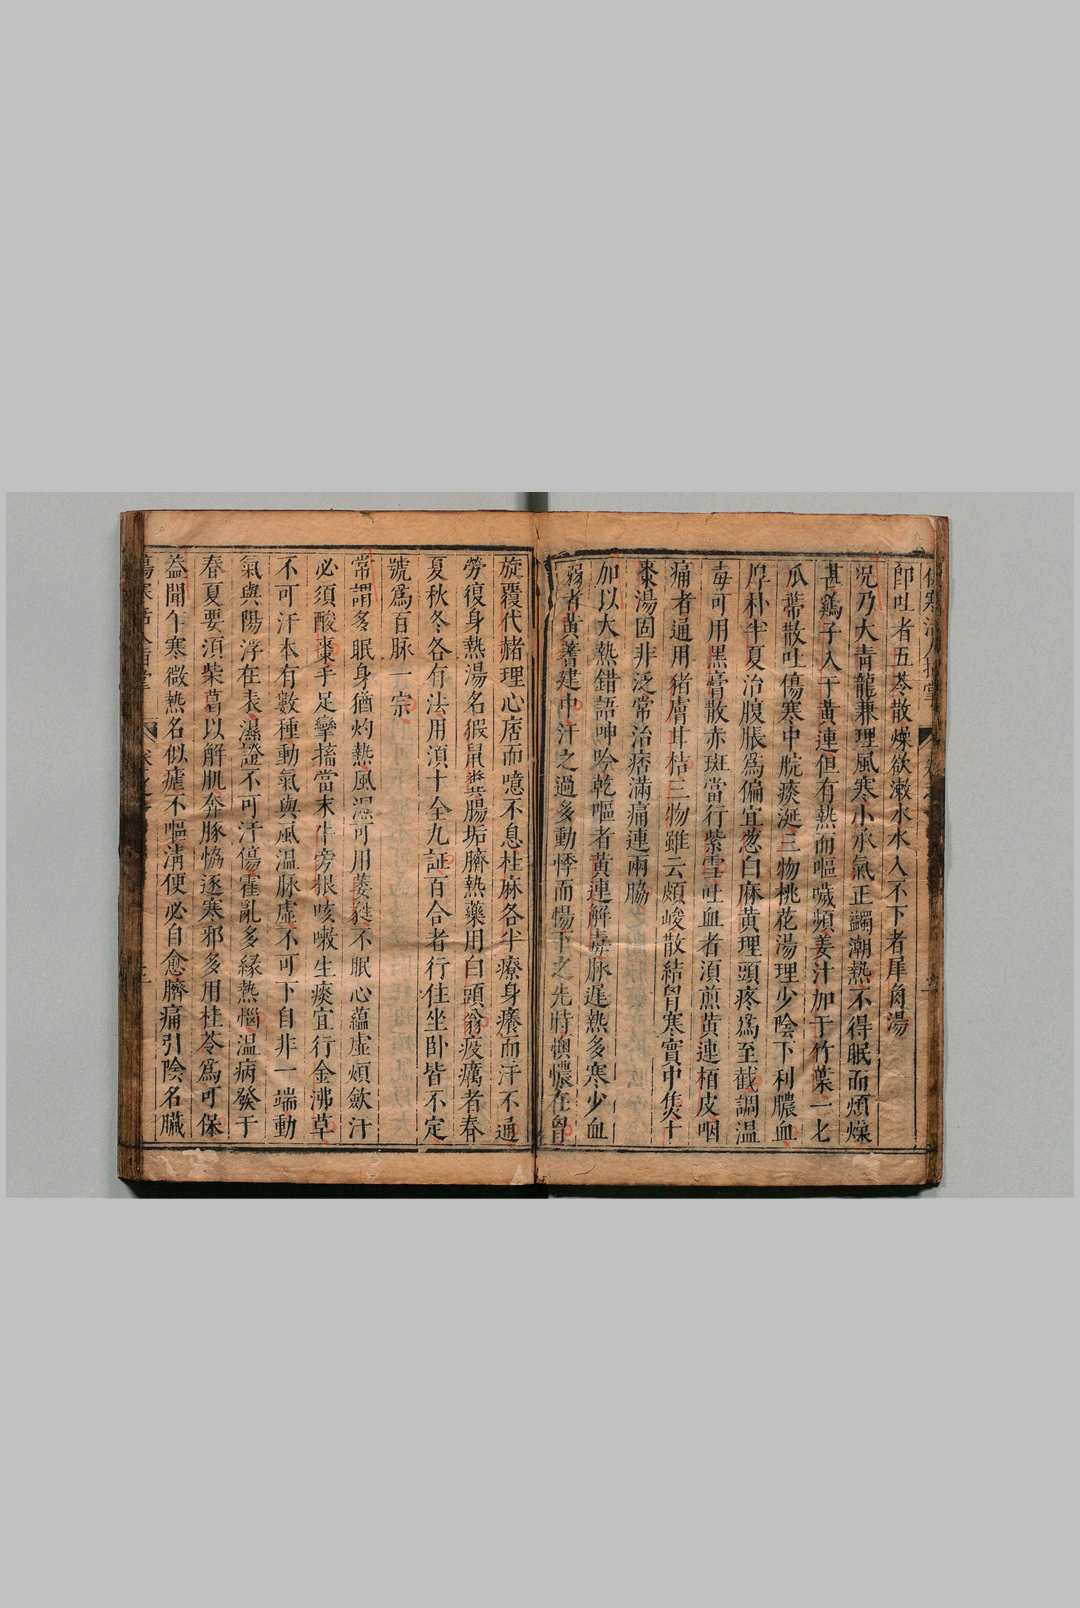 即吐者五苓散燥欲漱水水入不下者犀角湯
况乃大青龍兼理風寒小承氣正蠲潮熱不得眠而煩燥
甚鷄子入于黃連但有熱而嘔噦頻姜汁加于竹葉一七
瓜蒂散吐傷寒中脘痰涎三物桃花湯理少陰下利膿血
厚朴半夏治腹脹爲偏宜葱白麻黃理頭疼爲至截調温
毒可用黑膏散赤斑當行紫雪吐血者湏煎黃連栢皮咽
痛者通用猪膚甘桔三物雖云頗峻散結胷寒實中焦十
棗湯固非泛常治痞滿痛連兩脇
加以大熱錯語呻吟乾嘔者黃連解毒脉遲熱多寒少血
弱者黃蓍建中汗之過多動悸而惕下之先時懊憹在胷
旋覆代赭理心痞而噫不息杜麻各半療身癢而汗不通
勞復身熱湯名猳鼠糞腸垢臍熱藥用白頭翁疫癘者春
夏秋冬各有法用湏十全九証百合者行住坐卧皆不定
號爲百脉一宗
常謂多眠身猶灼熱風濕可用萎蕤不眠心蘊虛煩歛汗
必須酸棗手足攣搐當末牛旁根咳嗽生痰宜行金沸草
不可汗本有數種動氣與風温脉虛不可下自非一端動
氣與陽浮在表濕證不可汗傷霍亂多緣熱惱温病發于
春夏要湏柴葛以解肌奔豚恊逐寒邪多用桂苓爲可保
葢聞乍寒微熱名似瘧不嘔淸便必自愈臍痛引陰名臟
傷寒活人指掌 卷之